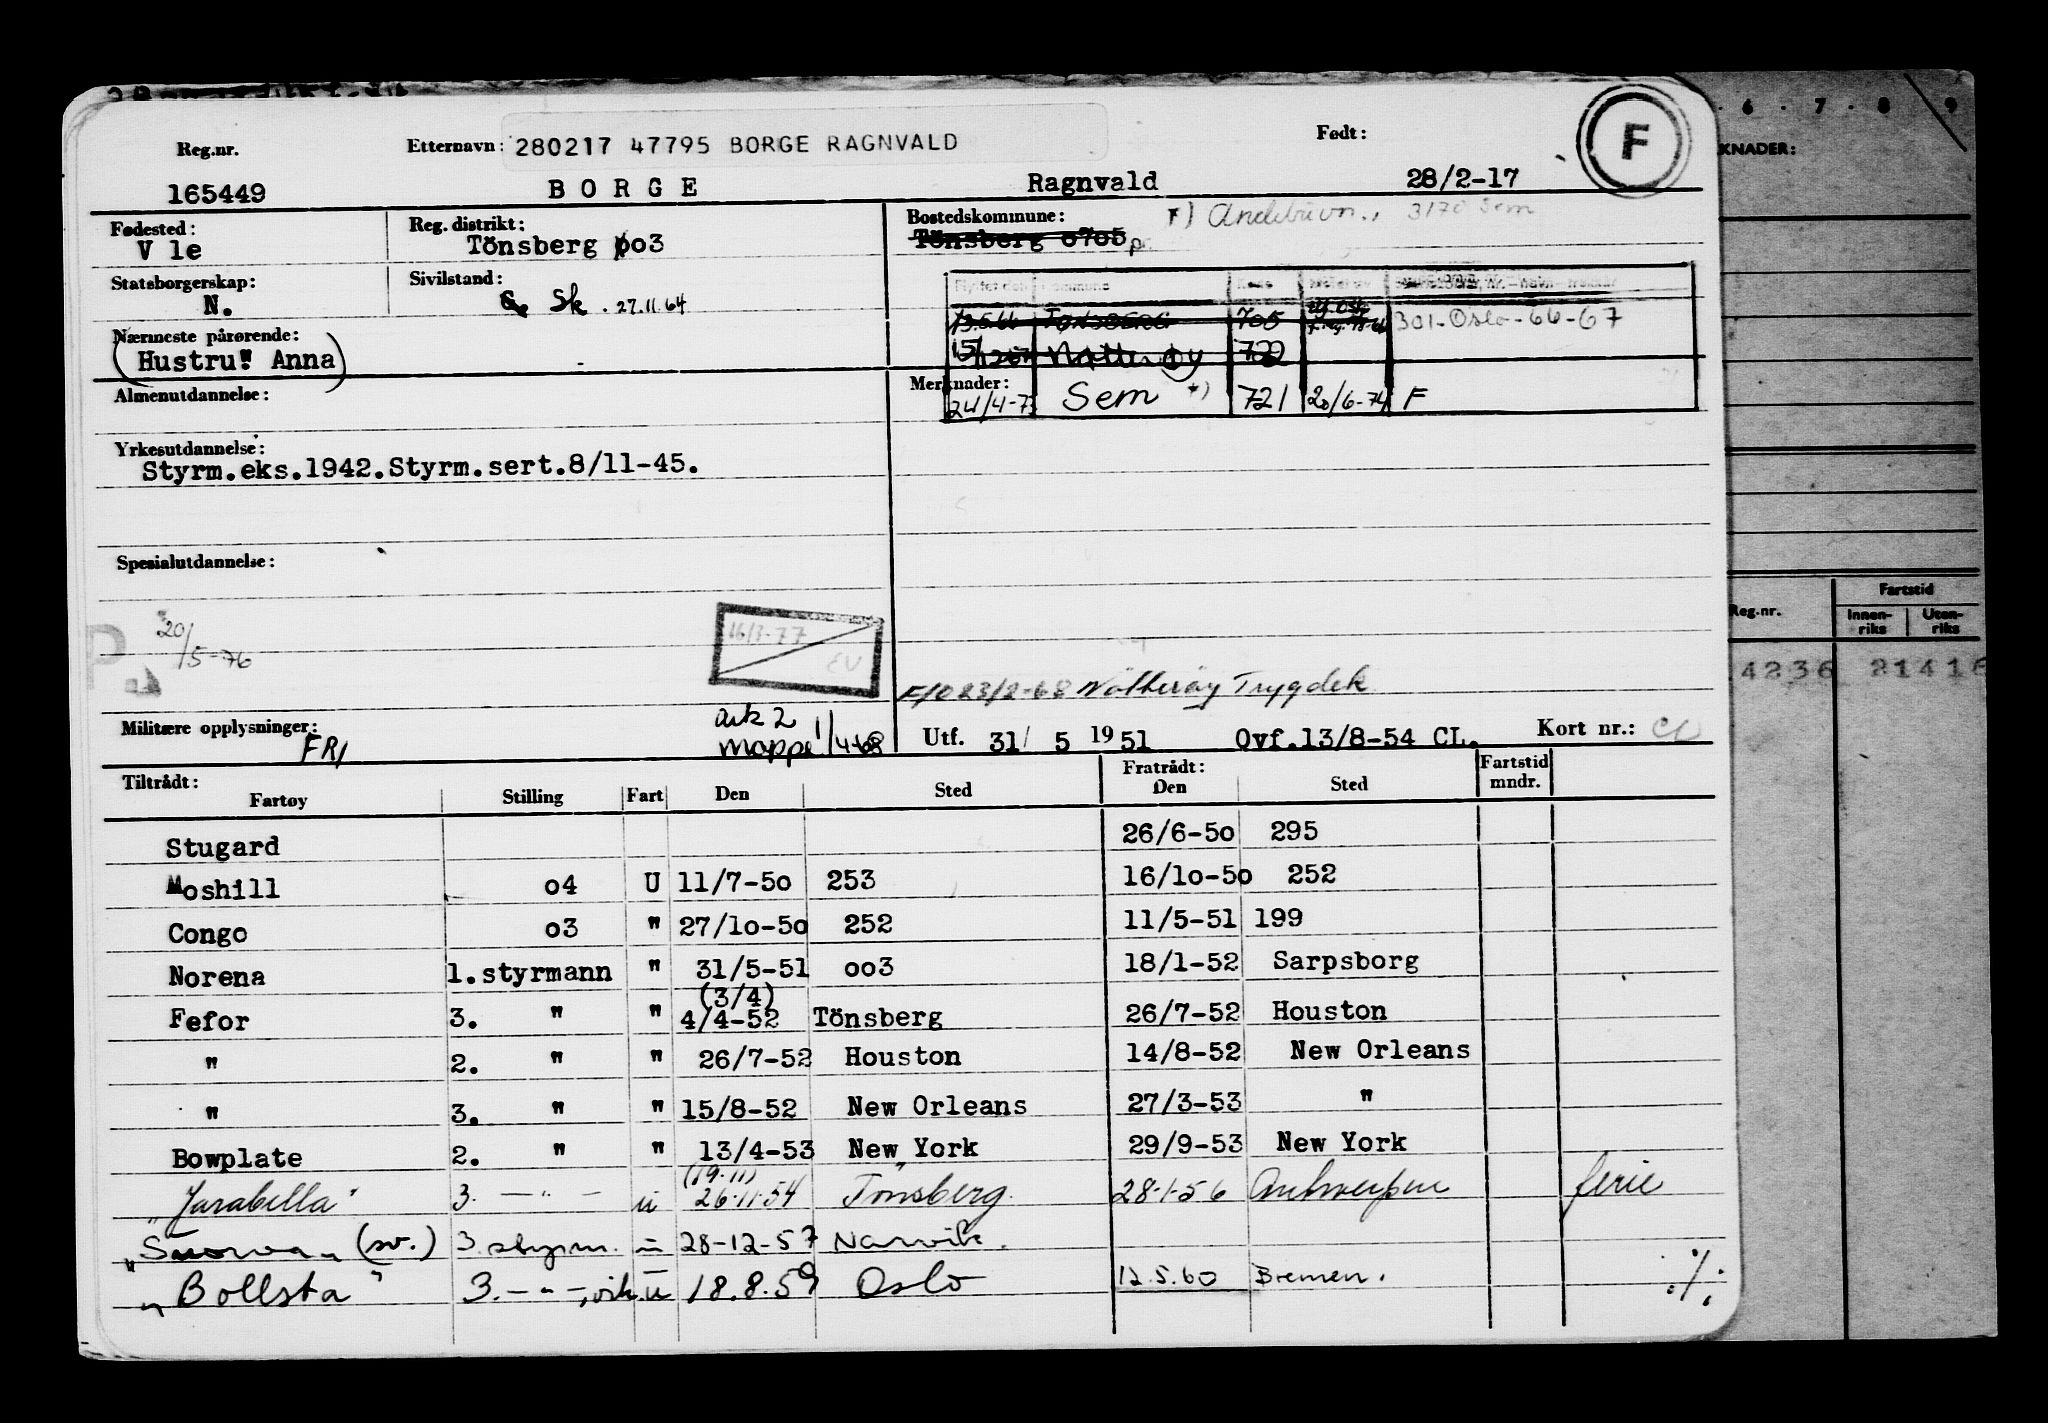 Reg.nr. Etternavn: 280217 47795 BORGE RAGNVALD Født: F
165449 BORGE Ragnvald 28/2-17
Fødested: Reg. distrikt: Bostedskommune: 3170 Sem
V le Tönsberg 003 Tönsberg 0705
Statsborgerskap: Sivilstand:
N. Sk. 27.11.64
705 301-Oslo-66-67
Nærmeste pårørende:
(Hustru: Anna)
Nøtterøy 722
Almenutdannelse: Merknader:
24/4-7 Sem *) 721 20/6-74 F
Yrkesutdannelse:
Styrm.eks.1942.Styrm.sert.8/11-45.
Spesialutdannelse:
20/5-76 16/3-77 EU
F/O 23/2-68 Nötteröy Trygdek.
Militære opplysninger: FRI
ark 2
mappe 1/4-68
Utf. 31/ 5 1951 Ovf.13/8-54 CL. Kort nr.:
Tiltrådt: Fratrådt: Fartstid mndr.
Fartøy Stilling Fart Den Sted Den Sted
Stugard 26/6-50 295
Moshill 04 U 11/7-50 253 16/10-50 252
Congo 03 " 27/10-50 252 11/5-51 199
Norena 1.styrmann " 31/5-51 003 18/1-52 Sarpsborg
(3/4)
Fefor 3. " " 4/4-52 Tönsberg 26/7-52 Houston
" 2. " " 26/7-52 Houston 14/8-52 New Orleans
" 3. " " 15/8-52 New Orleans 27/3-53 "
Bowplate 2. " " 13/4-53 New York 29/9-53 New York
(19.11)
"Jarabella" 3. —"— u 26.11.54 Tönsberg. 28.1.56 Antwerpen ferie
(sv.) 3. styrm. u 28-12-57 Narvik.
"Bollsta" 3.—"—, vik. u 18.8.59 Oslo 12.5.60 Bremen. ./.
6 . 7 . 8 . 9
KNADER:
Reg.nr. Fartstid
Innen-riks Uten-riks
4236 21416